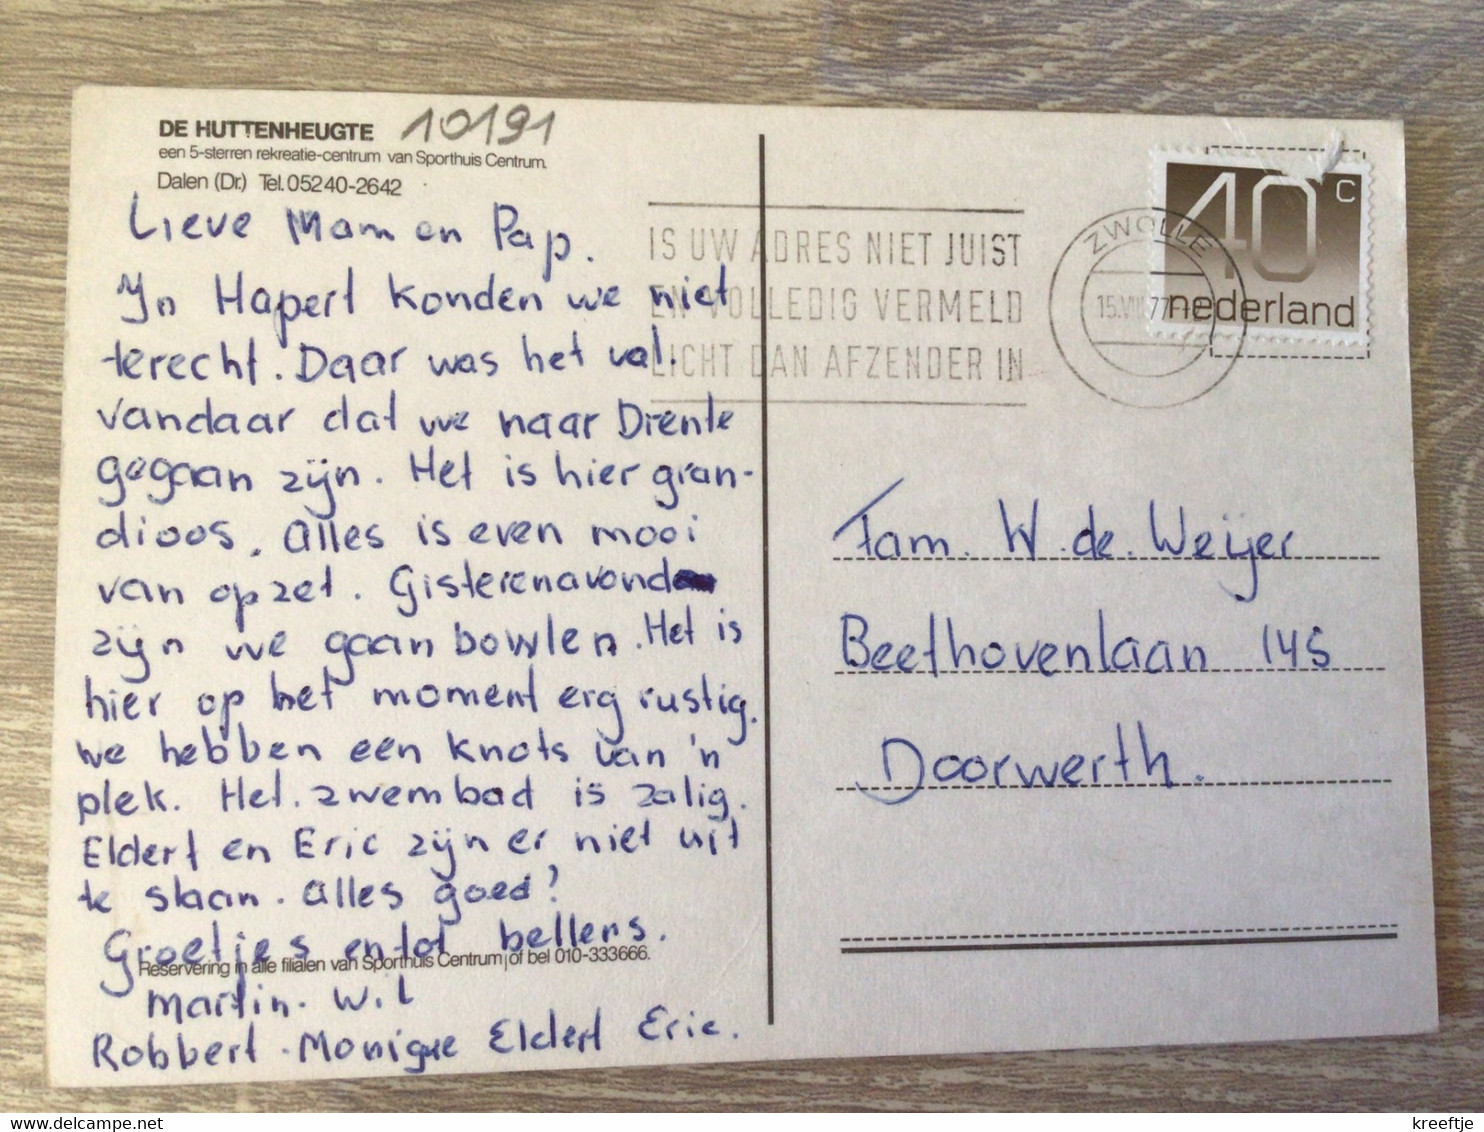 DE HUTTENHEUGTE 10191
een 5-sterren rekreatie-centrum van Sporthuis Centrum.
Dalen (Dr.) Tel. 05240-2642
Lieve Mam en Pap.
In Hapert konden we niet
terecht. Daar was het vol.
vandaar dat we naar Drente
gegaan zijn. Het is hier gran-
dioos. Alles is even mooi
van opzet. Gisterenavond
zijn we gaan bowlen. Het is
hier op het moment erg rustig.
we hebben een knots van 'n
plek. Het zwembad is zalig.
Eldert en Eric zijn er niet uit
te slaan. Alles goed?
Groetjes en tot bellens.
Reservering in alle filialen van Sporthuis Centrum of bel 010-333666.
Martin. Wil
Robbert. Monique Eldert Eric.
IS UW ADRES NIET JUIST
EN VOLLEDIG VERMELD
LICHT DAN AFZENDER IN
ZWOLLE
15.VIII.77
40 c
nederland
Fam. W. de Weijer
Beethovenlaan 145
Doorwerth.
kreeftje